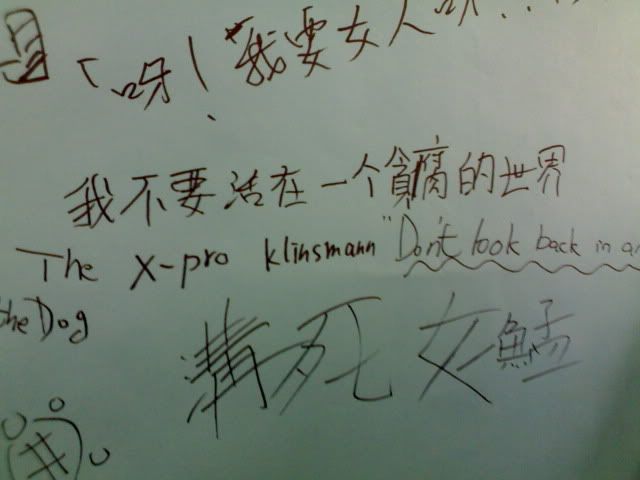 呀! "我要女人呀...
我不要活在一个貪腐的世界
The x-pro klinsmann "Don't look back in an
the Dog
死 女